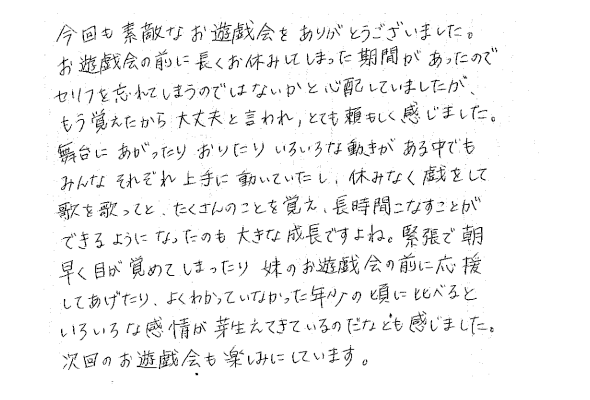 今回も素敵なお遊戯会をありがとうございました。
お遊戯会の前に長くお休みしてしまった期間があったので
セリフを忘れてしまうのではないかと心配していましたが、
もう覚えたから大丈夫と言われ、とても頼もしく感じました。
舞台にあがったりおりたりいろいろな動きがある中でも
みんなそれぞれ上手に動いていたし、休みなく戯をして
歌を歌ってと、たくさんのことを覚え、長時間こなすことが
できるようになったのも大きな成長ですよね。緊張で朝
早く目が覚めてしまったり妹のお遊戯会の前に応援
してあげたり、よくわかっていなかった年少の頃に比べると
いろいろな感情が芽生えてきているのだなとも感じました。
次回のお遊戯会も楽しみにしています。